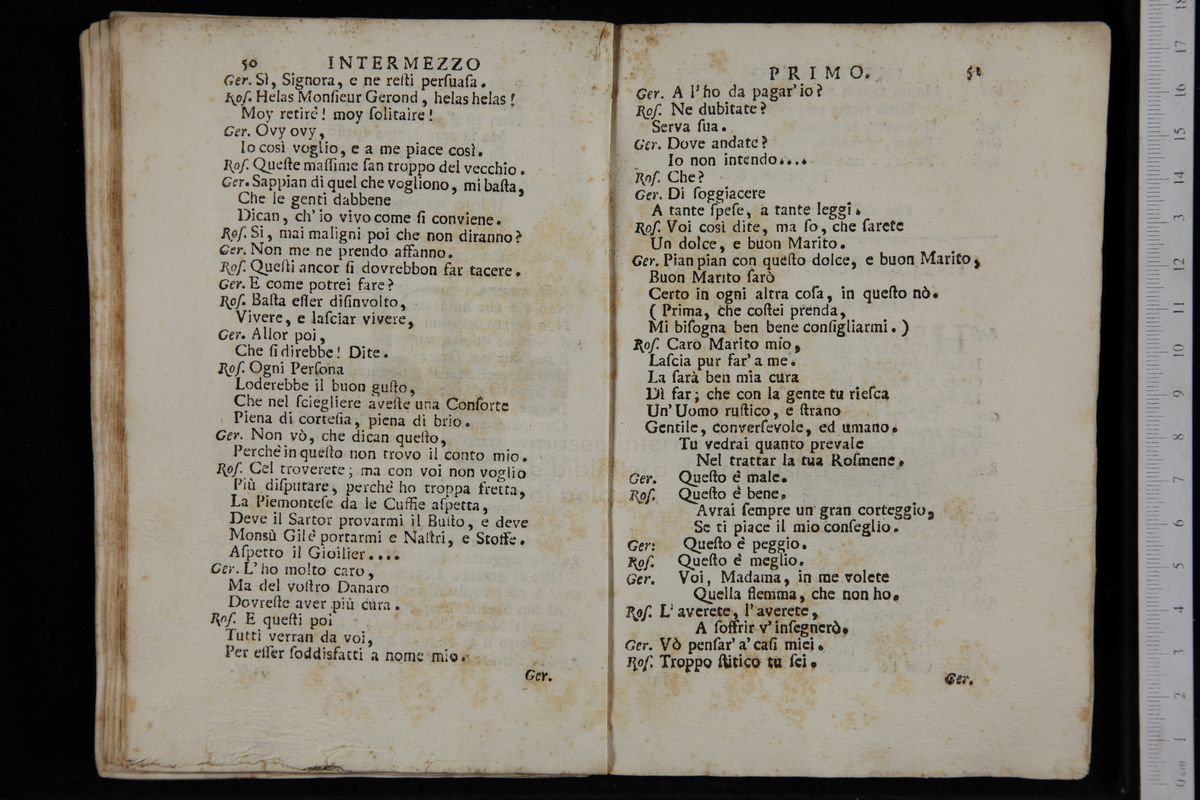 50 INTERMEZZO
Ger. Sì, Signora, e ne reſti perſuaſa.
Roſ. Helas Monſieur Gerond, helas helas!
Moy retirè! moy ſolitaire!
Ger. Ovy ovy,
Io così voglio, e a me piace così.
Roſ. Queſte maſſime ſan troppo del vecchio.
Ger. Sappian di quel che vogliono, mi baſta,
Che le genti dabbene
Dican, ch' io vivo come ſi conviene.
Roſ. Si, mai maligni poi che non diranno?
Ger. Non me ne prendo affanno.
Roſ. Queſti ancor ſi dovrebbon far tacere.
Ger. E come potrei fare?
Roſ. Baſta eſſer diſinvolto,
Vivere, e laſciar vivere,
Ger. Allor poi,
Che ſi direbbe! Dite.
Roſ. Ogni Perſona
Loderebbe il buon guſto,
Che nel ſciegliere aveſte una Conſorte
Piena di corteſia, piena di brio.
Ger. Non vò, che dican queſto,
Perchè in queſto non trovo il conto mio.
Roſ. Cel troverete; ma con voi non voglio
Più diſputare, perchè ho troppa fretta,
La Piemonteſe da le Cuffie aſpetta,
Deve il Sartor provarmi il Buſto, e deve
Monsù Gilè portarmi e Naſtri, e Stoffe.
Aſpetto il Gioilier....
Ger. L' ho molto caro,
Ma del voſtro Danaro
Dovreſte aver più cura.
Roſ. E queſti poi
Tutti verran da voi,
Per eſſer ſoddisfatti a nome mio.
Ger.
PRIMO. 51
Ger. A l' ho da pagar' io?
Roſ. Ne dubitate?
Serva ſua.
Ger. Dove andate?
Io non intendo....
Roſ. Che?
Ger. Di ſoggiacere
A tante ſpeſe, a tante leggi.
Roſ. Voi così dite, ma ſo, che ſarete
Un dolce, e buon Marito.
Ger. Pian pian con queſto dolce, e buon Marito,
Buon Marito ſarò
Certo in ogni altra coſa, in queſto nò.
( Prima, che coſtei prenda,
Mi biſogna ben bene conſigliarmi. )
Roſ. Caro Marito mio,
Laſcia pur far' a me.
La ſarà ben mia cura
Dì far; che con la gente tu rieſca
Un' Uomo ruſtico, e ſtrano
Gentile, converſevole, ed umano.
Tu vedrai quanto prevale
Nel trattar la tua Roſmene.
Ger. Queſto è male.
Roſ. Queſto è bene.
Avrai ſempre un gran corteggio,
Se ti piace il mio conſeglio.
Ger: Queſto è peggio.
Roſ. Queſto è meglio.
Ger. Voi, Madama, in me volete
Quella flemma, che non ho.
Roſ. L' averete, l' averete,
A ſoffrir v' inſegnerò.
Ger. Vò penſar' a' caſi miei.
Roſ. Troppo ſtitico tu ſei.
Ger.